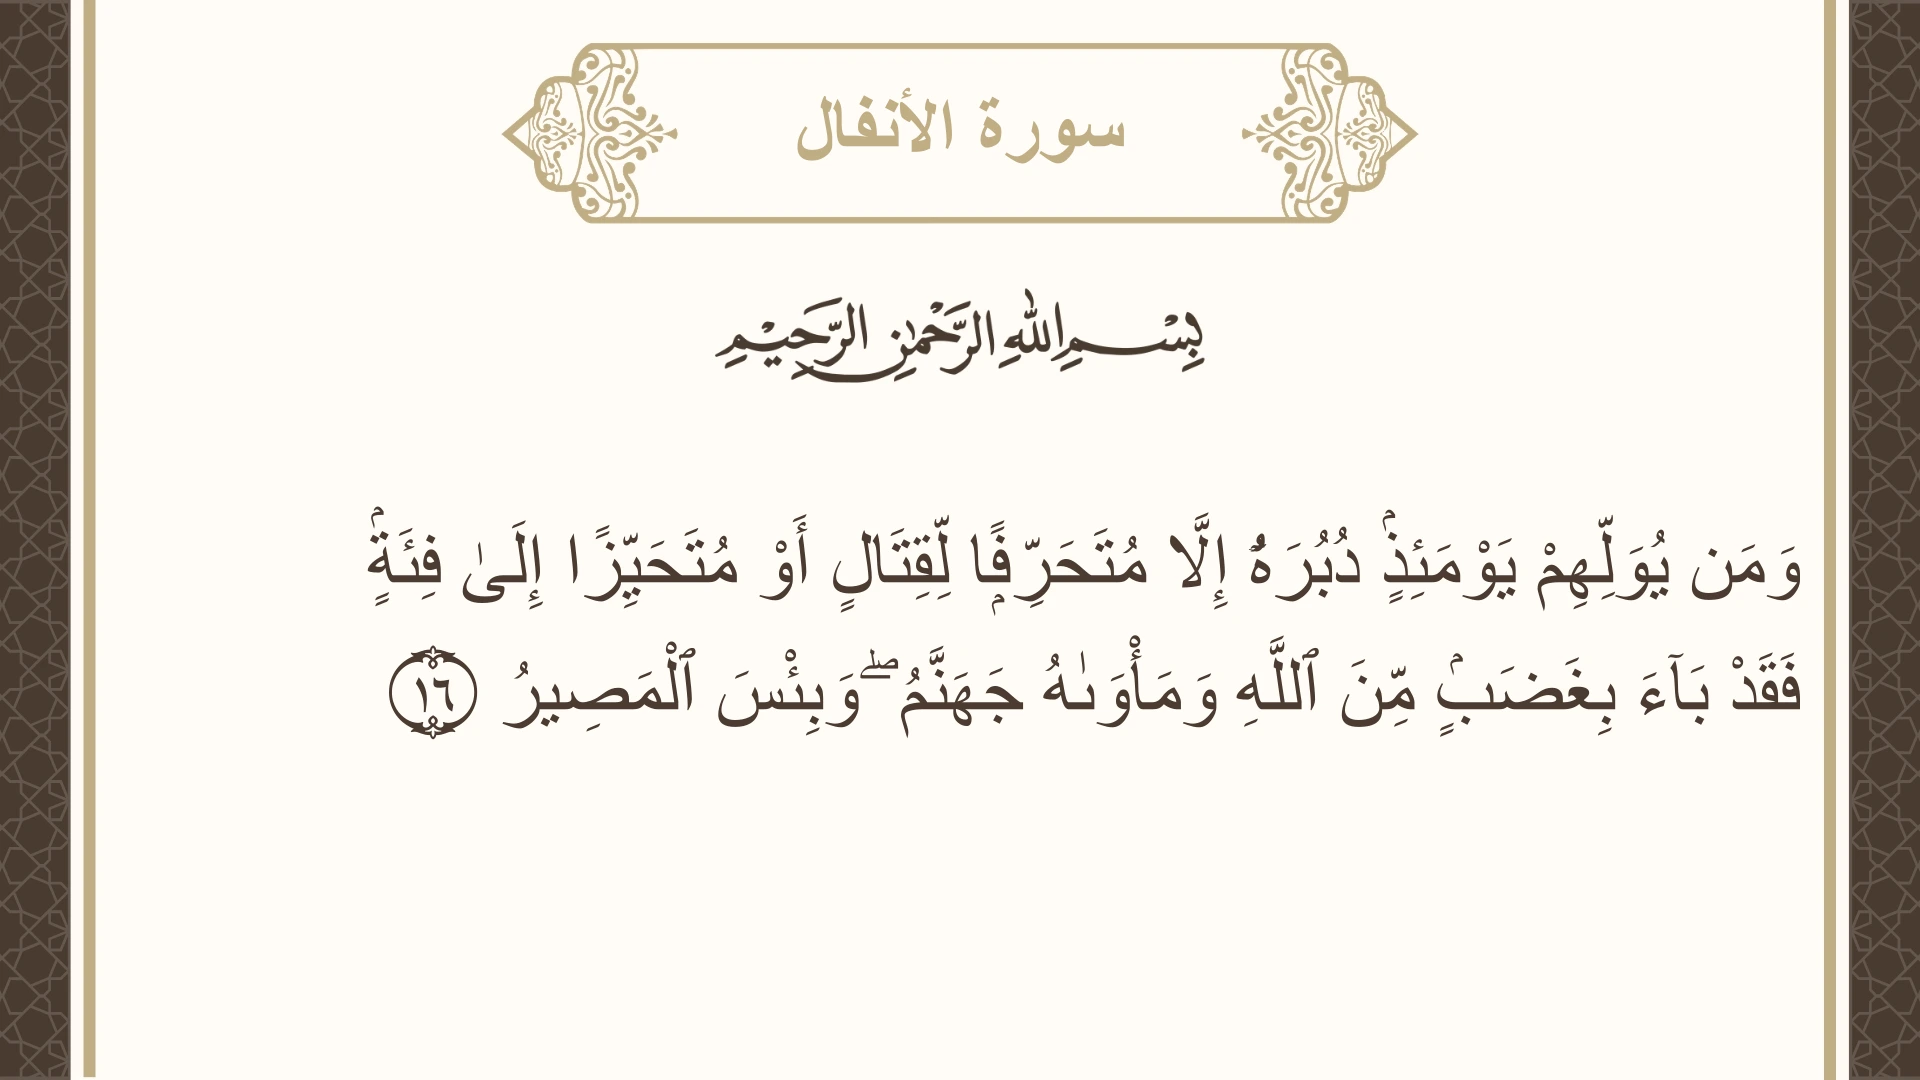 سورة الأنفال
بِسْمِ اللهِ الرَّحْمٰنِ الرَّحِيْمِ
وَمَن يُوَلِّهِمْ يَوْمَئِذٍۢ دُبُرَهُۥٓ إِلَّا مُتَحَرِّفًۭا لِّقِتَالٍ أَوْ مُتَحَيِّزًا إِلَىٰ فِئَةٍۢ
فَقَدْ بَآءَ بِغَضَبٍۢ مِّنَ ٱللَّهِ وَمَأْوَىٰهُ جَهَنَّمُ ۖ وَبِئْسَ ٱلْمَصِيرُ ١٦